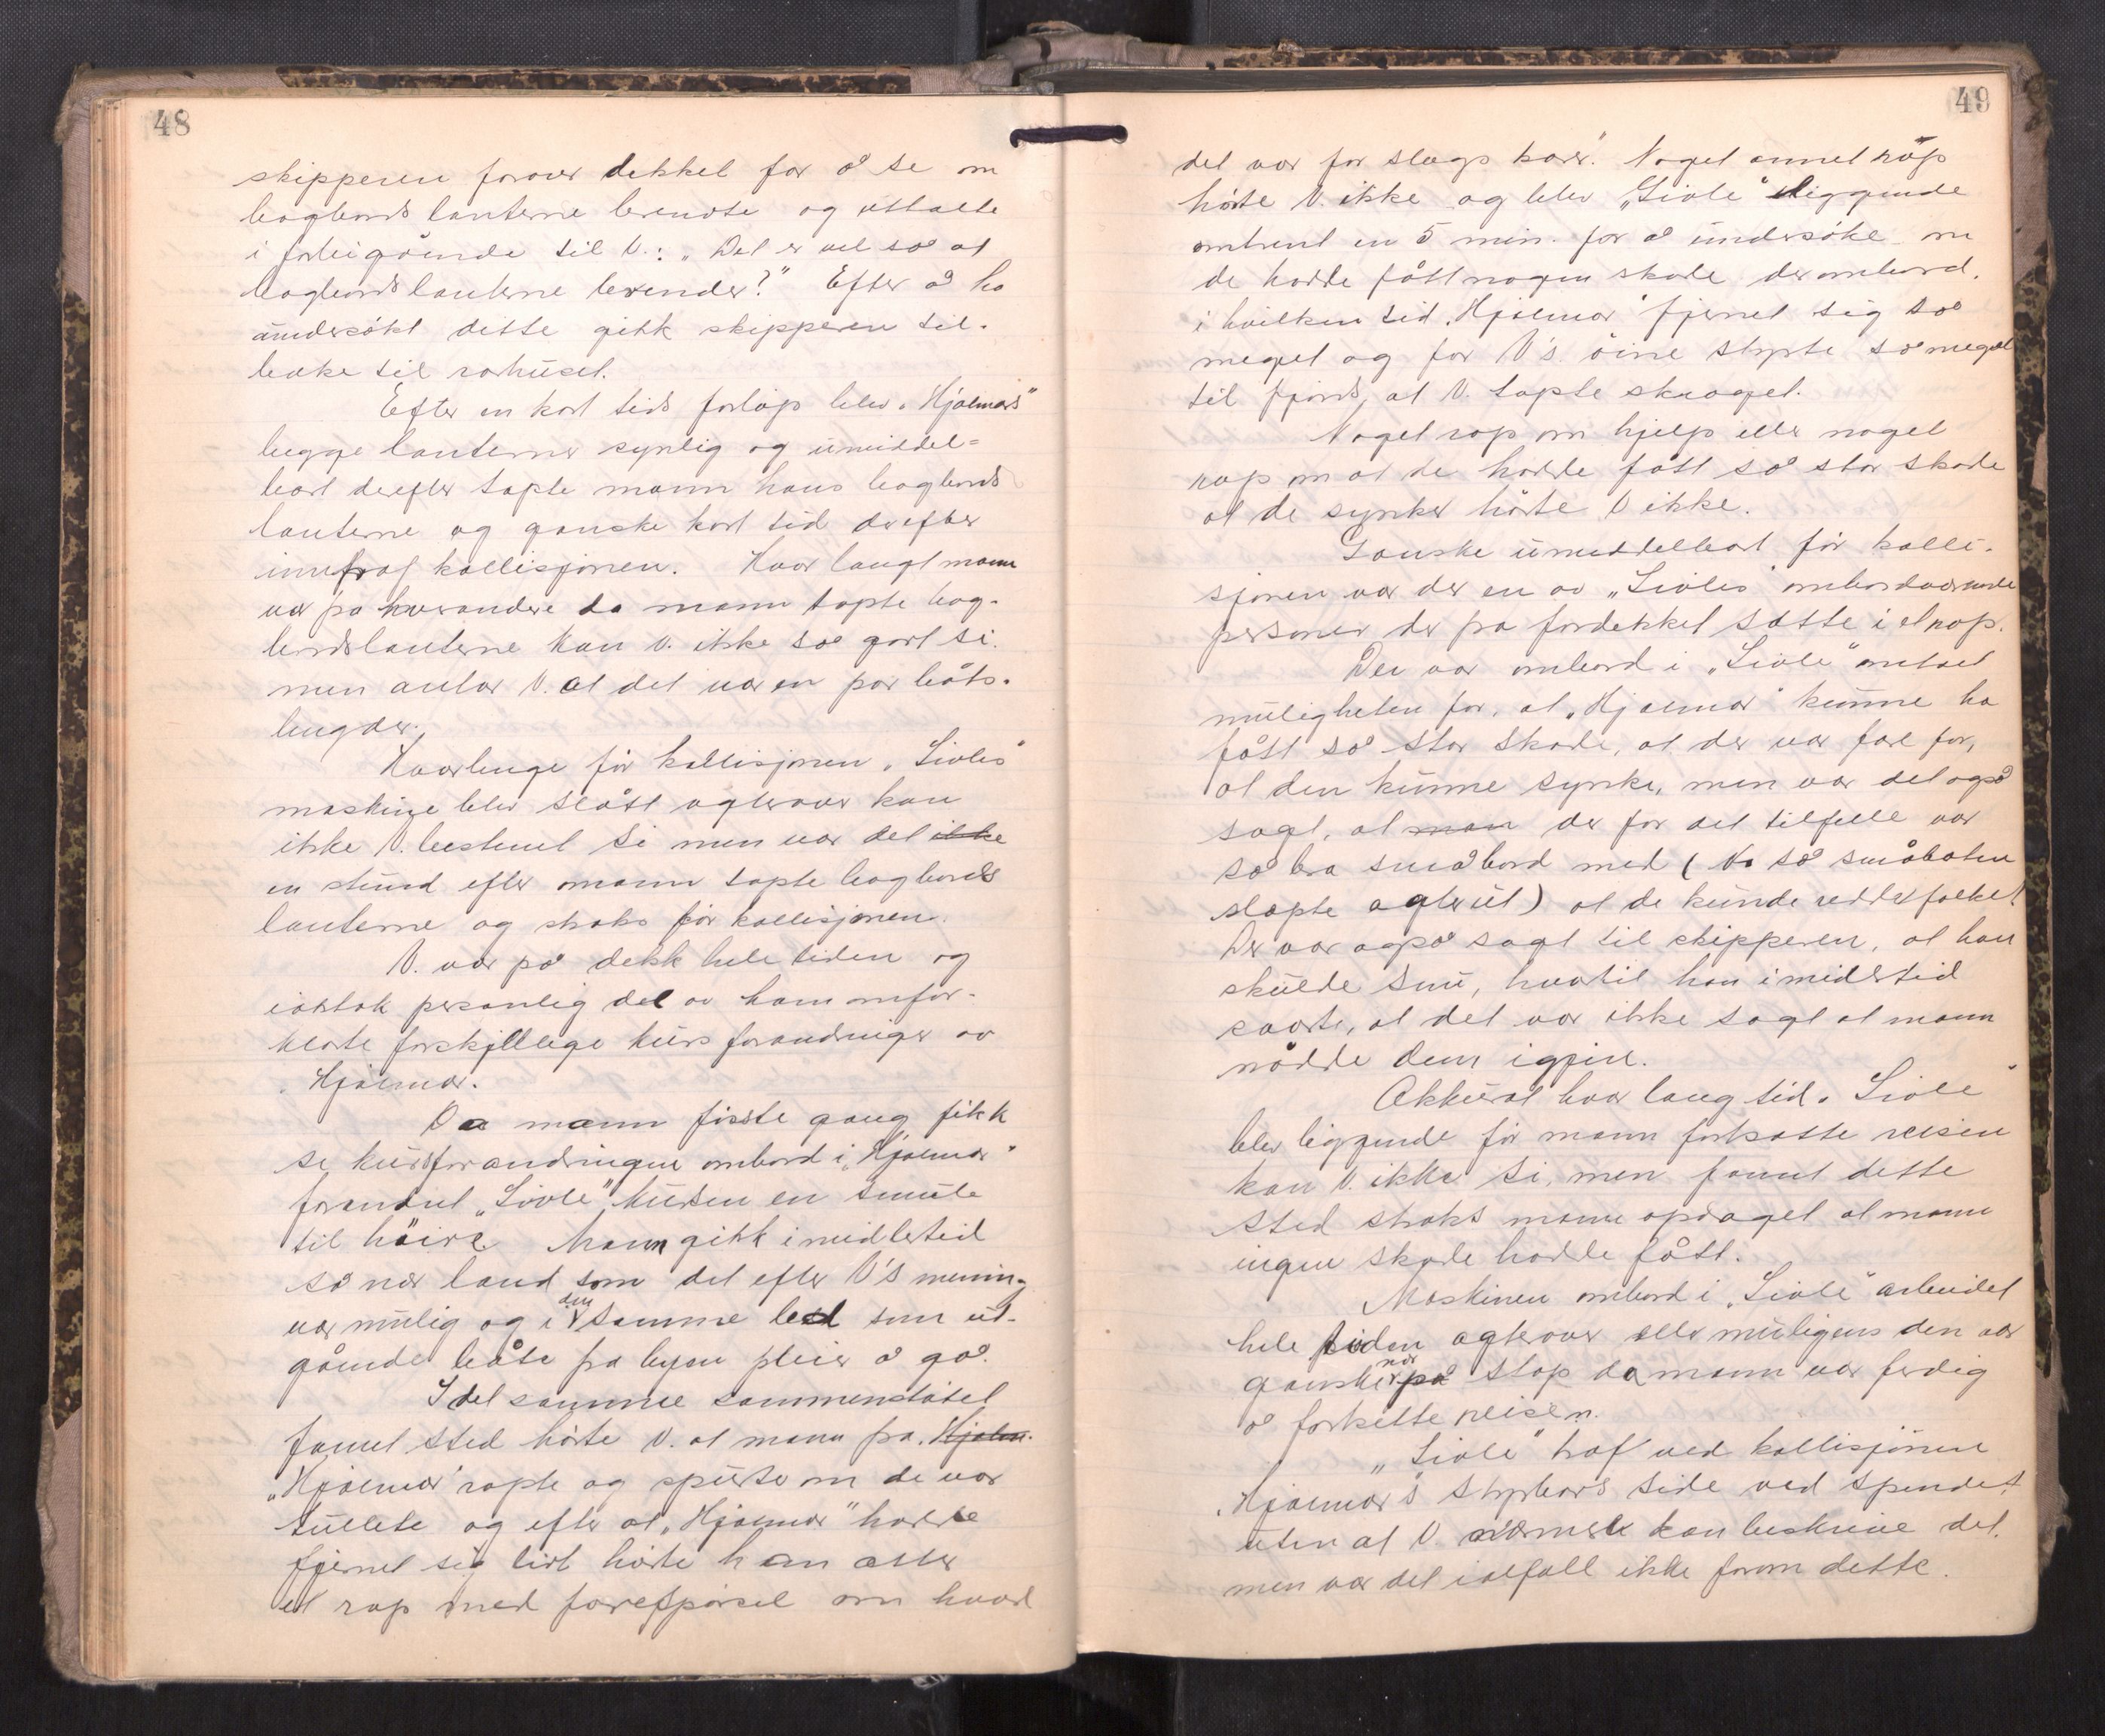 48
skipperen forover dekket for å se om
bagbords lanterne brendte og uttalte
i forbigående til V.: „Det er vel så at
bagbords lanterne brender?" Efter å ha
undersøkt dette gikk skipperen til-
bake til rorhuset.
Efter en kort tids forløp blev „Hjalmars"
begge lanterner synlig og umiddel=
bart derefter tapte mann hans bagbords
lanterne og ganske kort tid derefter
inntraf kollisjonen. Hvor langt mann
var fra hverandre da mann tapte bag-
bordslanterne kan V. ikke så gort si.
men antar V. at det var en par båts-
lengder.
Hvorlenge før kollisjonen „Livles"
maskine blev slått agterover kan
ikke V. bestemt si men var det ikke
en stund efter mann tapte bagbords
lanterne og straks før kollisjonen.
V. var på dekk hele tiden og
iaktok personlig del av ham omfor-
klarte forskjellige kurs forandringer av
„Hjalmar.
Da mann første gang fikk
se kursforandringene ombord i „Hjalmar"
forandret „Livle" kursen en smule
til høire. Mann gikk imidlertid
så nær land som det efter V's mening
var mulig og i den samme led som ut-
gående båte fra byen pleier å gå.
I det samme sammenstøtet
fannt sted hørte V. at mann fra „Hjalm.
„Hjalmar" ropte og spurte om de var
tullete og efter at „Hjalmar" hadde
fjernet sig litt hørte han atter
et rop med forespørsel om hvad
49
det var for slags karer." Noget annet rop
hørte V. ikke og blev „Livle" liggende
omtrent en 5 min. for å undersøke om
de hadde fått nogen skade derombord.
i hvilken tid „Hjalmar" fjernet sig så
meget og for V's. øine styrte så meget
til fjords, at V. tapte skroget.
Noget rop om hjelp eller noget
rop om at de hadde fått så stor skade
at de synker hørte V ikke.
Ganske umiddelbart før kolli-
sjonen var der en av „Livles" ombordværende
personer der fra fordekket satte i et rop.
Der var ombord i „Livle" omtalt
muligheten for, at „Hjalmar" kunne ha
fått så stor skade, at der var fare for,
at den kunne synke, men var det også
sagt, at man der for det tilfelle var
så bra småbord med (Vo så småbåten
slapte agterut) at de kunde redde folket
Der var også sagt til skipperen, at han
skulde snu, hvortil han imidlertid
svarte, at det var ikke sagt at mann
nådde dem igjen.
Akkurat hvor lang tid „Livle"
blev liggende før mann fortsatte reisen
kan V. ikke si, men fannt dette
sted straks mann opdaget at mann
ingen skade hadde fått.
Maskinen ombord i „Livle" arbeidet
hele tiden agterover eller muligens den var
ganske nær på stop da mann var ferdig
å fortsette reisen.
„Livle" traf ved kollisjonen
„Hjalmar's" styrbords side ved speilet
uten at V. nærmere kan beskrive det,
men var det ialfall ikke foran dette.